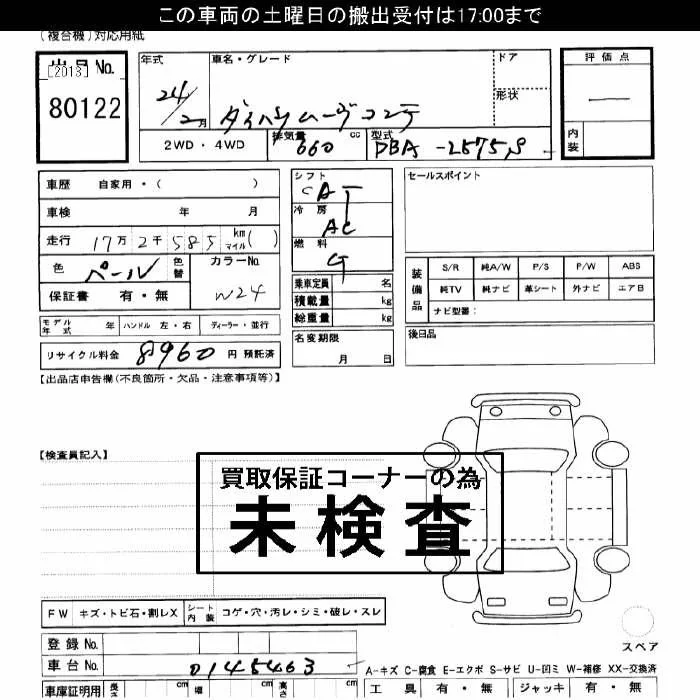 この車両の土曜日の搬出受付は17:00まで
(複合機)対応用紙
出品 No.
[2013]
80122
年式 車名・グレード ドア 評価点
24/2月 ダイハツムーヴコンテ 形状 —
2WD・4WD 排気量 660 cc 型式 DBA-L575S 内装
車歴 自家用・( )
車検 年 月
走行 17万2千585 km マイル( )
色 パール 色替 カラーNo. W24
保証書 有・無
モデル年式 年 ハンドル 左・右 ディーラー・並行
リサイクル料金 8960 円 預託済
シフト
CAT
冷房
AC
燃料
G
乗車定員 名
積載量 kg
総重量 kg
名変期限
月 日
セールスポイント
装備品 S/R 純A/W P/S P/W ABS
純TV 純ナビ 革シート 外ナビ エアB
ナビ型番:
後日品
【出品店申告欄(不良箇所・欠品・注意事項等)】
【検査員記入】
買取保証コーナーの為
未検査
FW キズ・トビ石・割レX シート内装 コゲ・穴・汚レ・シミ・破レ・スレ
スペア
登録 No.
車台 No. 0145463
A-キズ C-腐食 E-エクボ S-サビ U-凹ミ W-補修 XX-交換済
車庫証明用 長さ cm 幅 cm 高さ cm 工具 有・無 ジャッキ 有・無